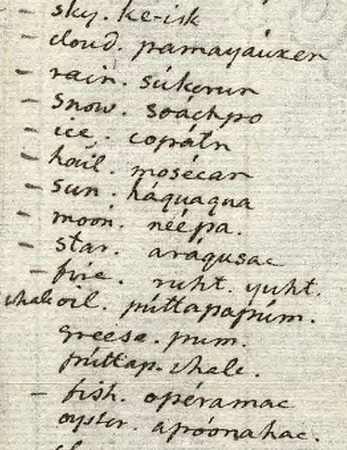 - sky. ke-isk
- cloud. pamayaúxen
- rain. súkerun
- snow. soáchpo
- ice. copátn
- hail. mosécan
- sun. háquaqua
- moon. néépa.
- star. aráqusac
- fire. ruht. yuht.
whale oil. púttapapúm.
greese. pum.
púttap. whale.
- fish. operamac
oyster. apóonahac.